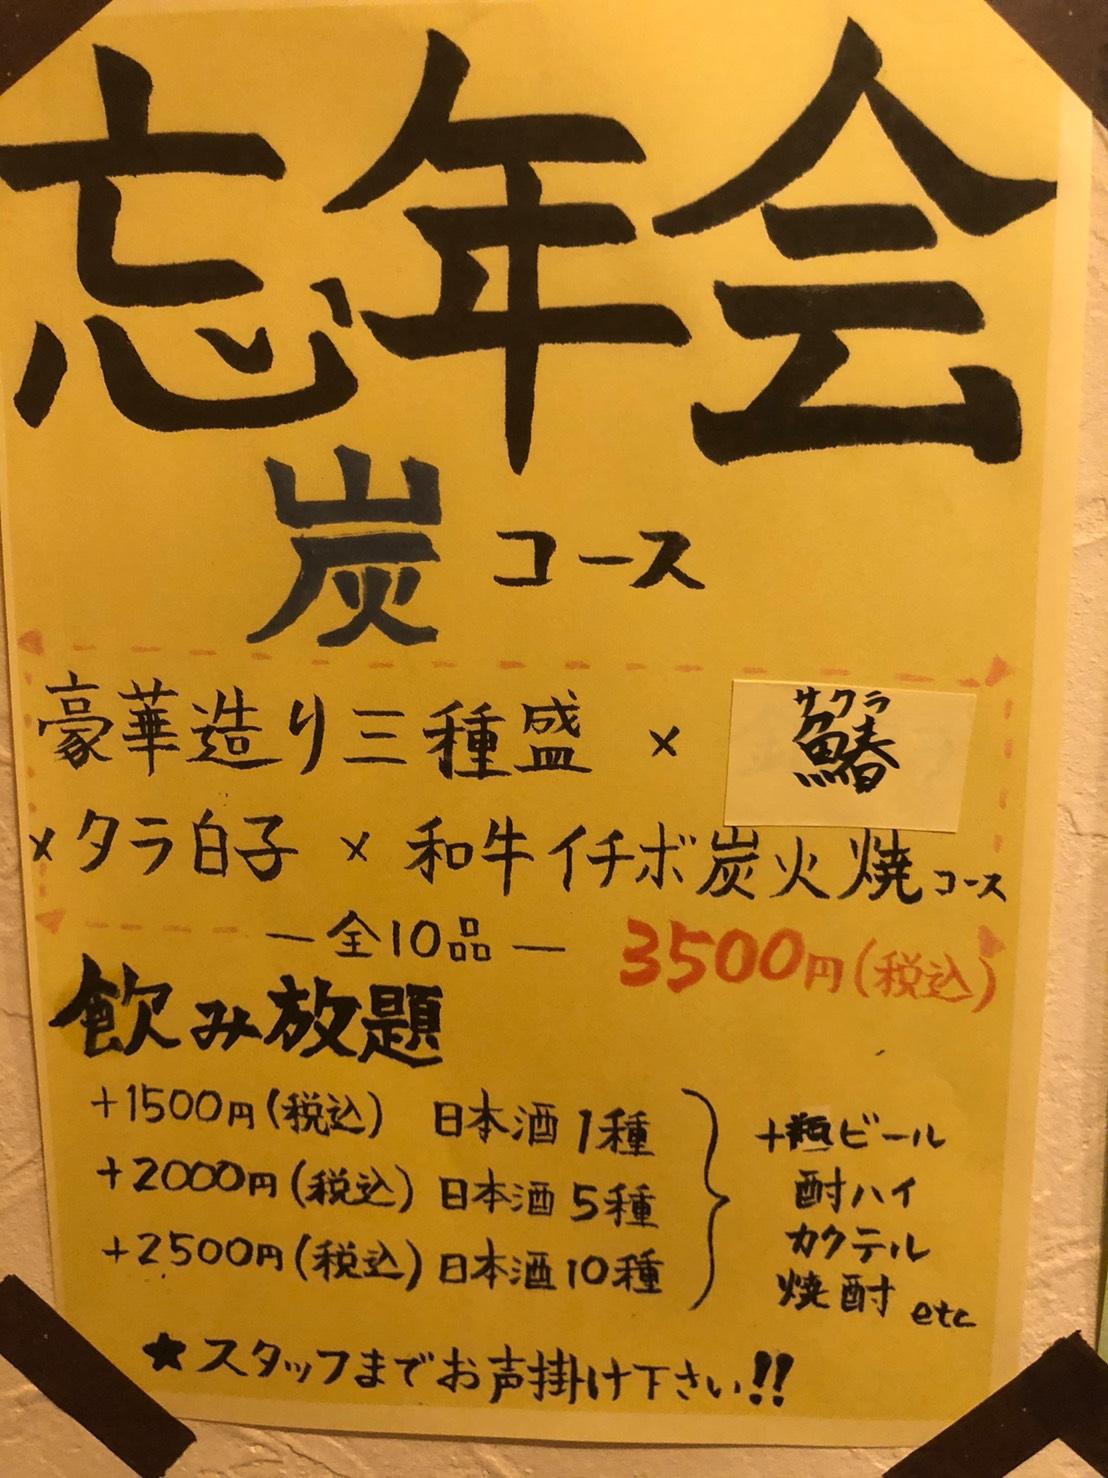 忘年会
炭コース
豪華造り三種盛 × 鰆
サクラ
×タラ白子 × 和牛イチボ炭火焼コース
―全10品― 3500円(税込)
飲み放題
+1500円(税込) 日本酒1種
+2000円(税込) 日本酒5種
+2500円(税込) 日本酒10種
+瓶ビール
酎ハイ
カクテル
焼酎 etc
★スタッフまでお声掛け下さい!!